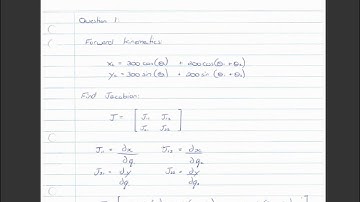 Question 1
Forward Kinematics
x₂ = 300 cos(θ₁) + 200 cos(θ₁ + θ₂)
y₂ = 300 sin(θ₁) + 200 sin(θ₁ + θ₂)
Find Jacobian:
J = [ J₁₁ J₁₂
J₂₁ J₂₂ ]
J₁₁ = ∂x/∂q₁ J₁₂ = ∂x/∂q₂
J₂₁ = ∂y/∂q₁ J₂₂ = ∂y/∂q₂